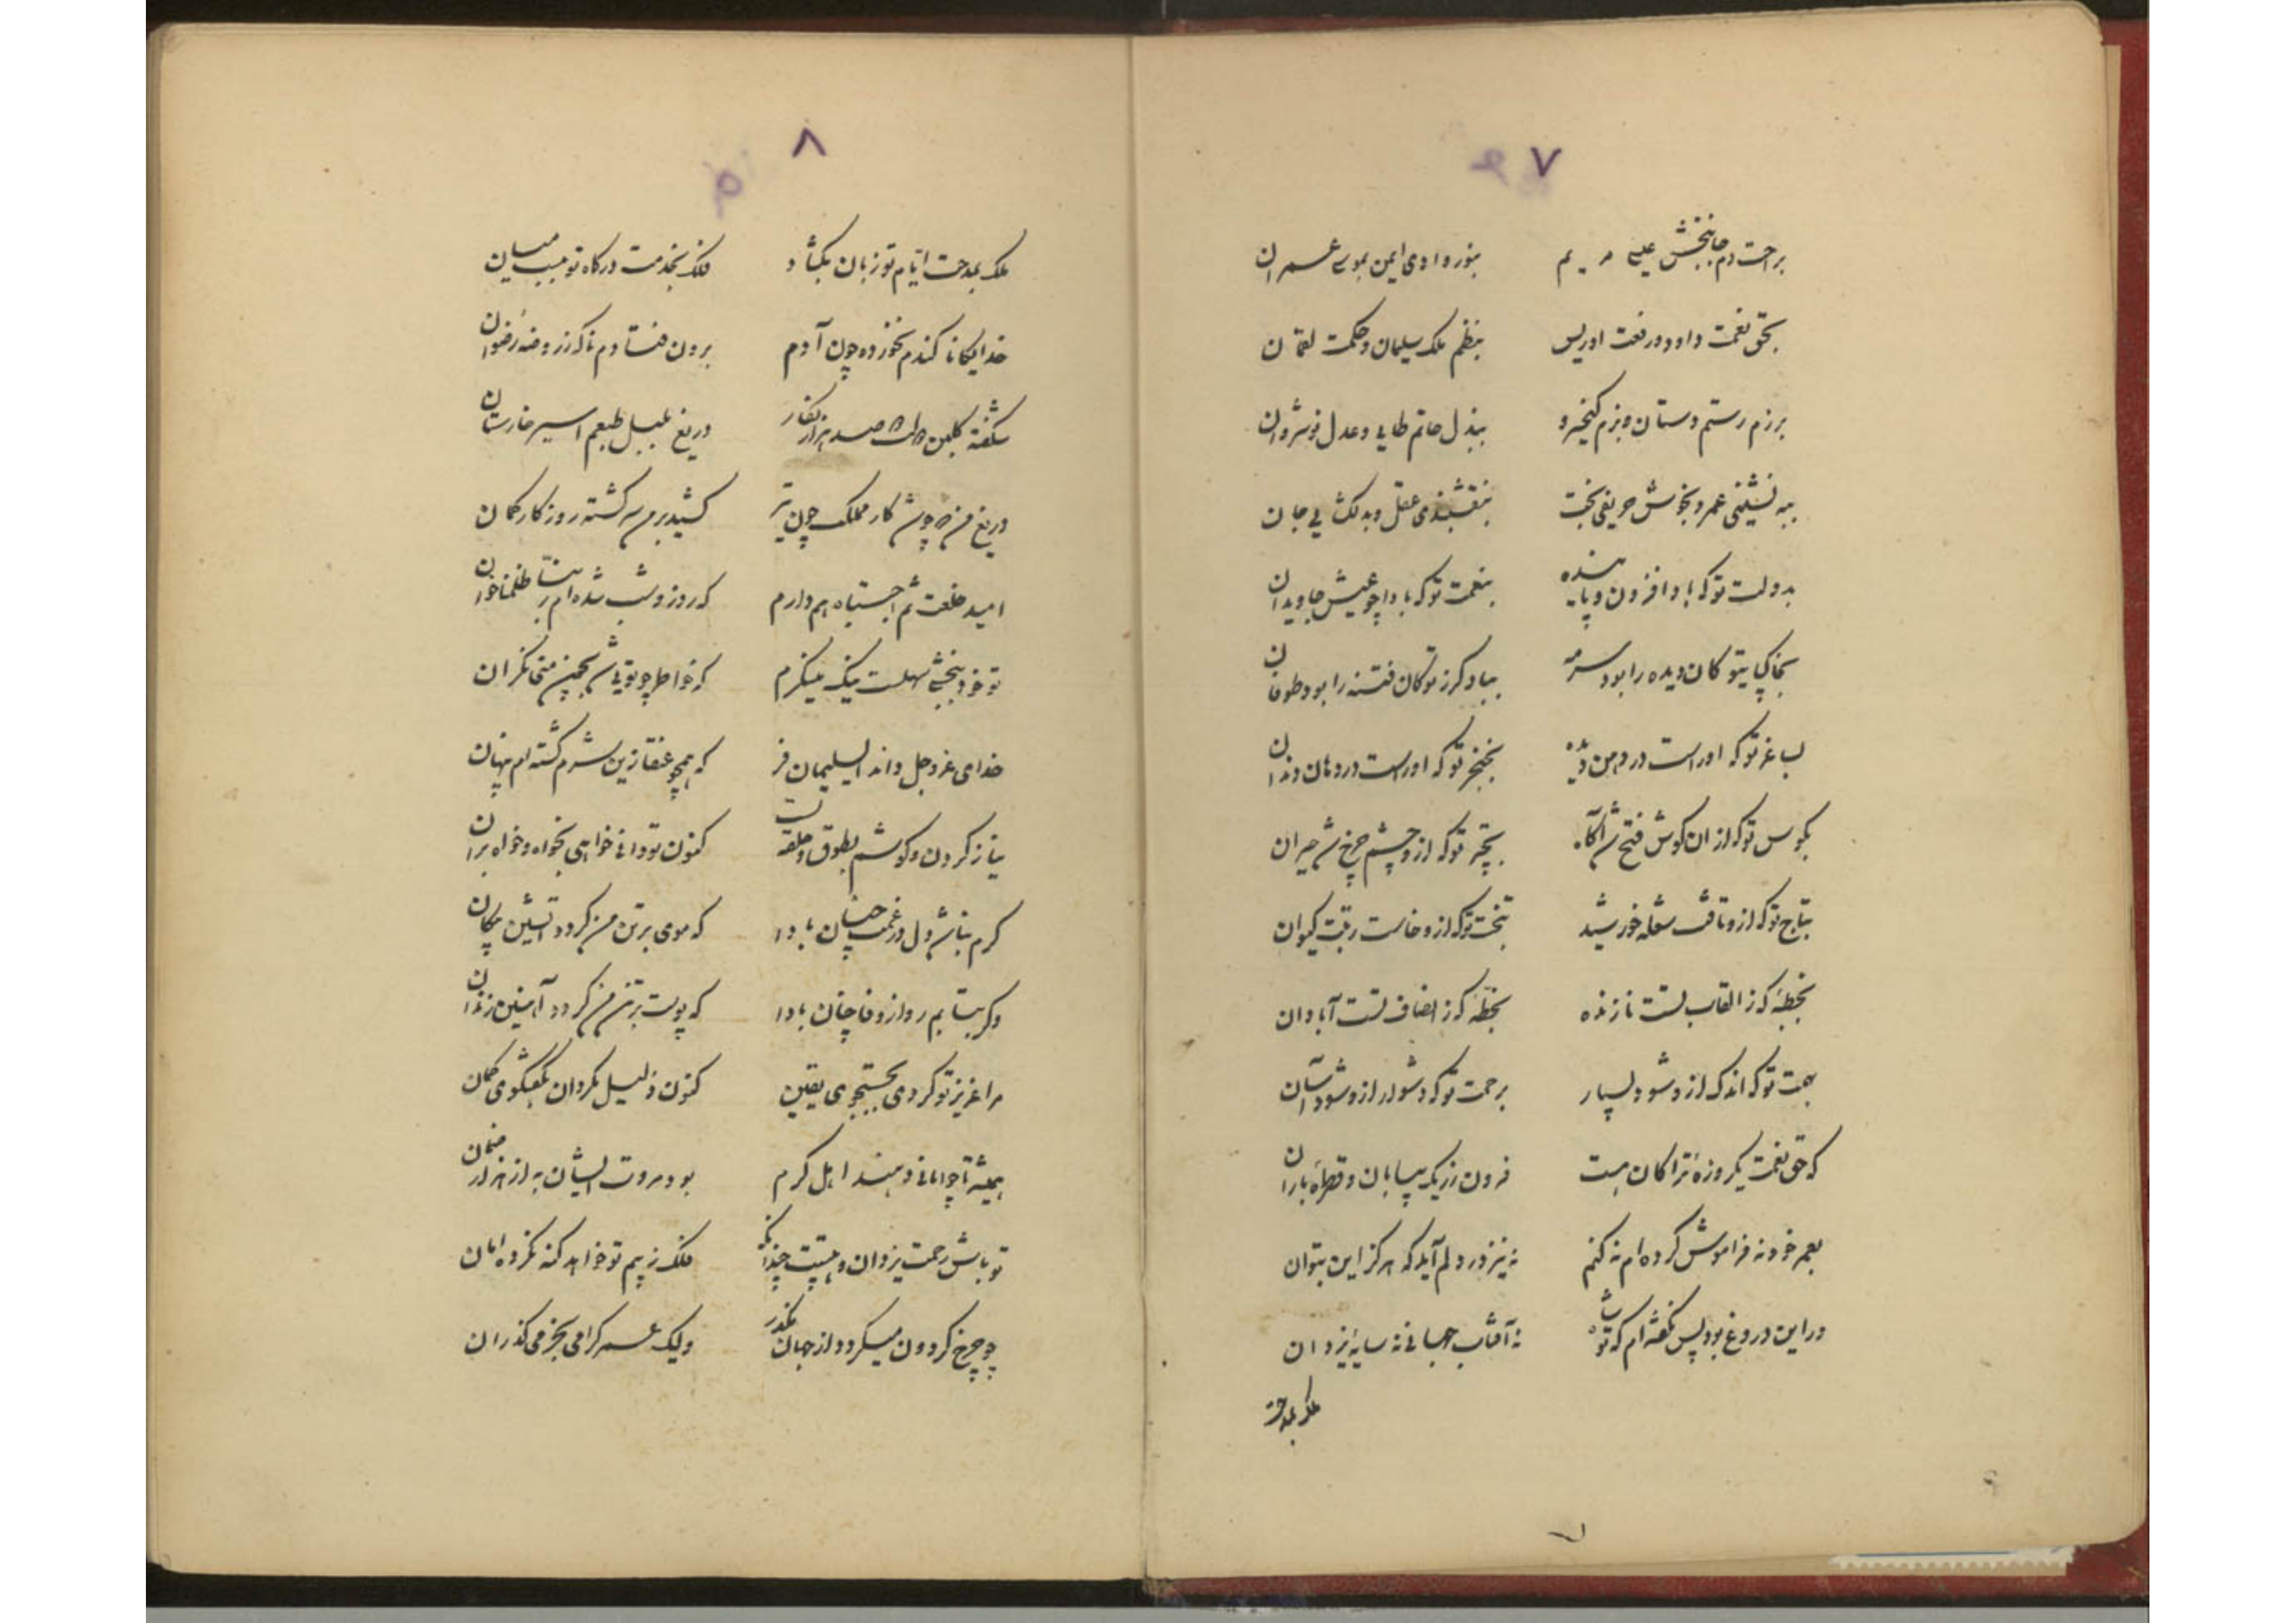 ۷
براحت دم جانبخش عیسی مریم بنور وادی ایمن بموسی عمران
بحق نغمت داود و رفعت ادریس بنظم ملک سلیمان و حکمت لقمان
برزم رستم دستان و بزم کیخسرو ببذل حاتم طایی و عدل نوشروان
بهمنشینی عمر و بخوش حریفی بخت بنقشبندی عقل و بدلکشایی جان
بدولت تو که بادا فزون و پاینده بنعمت تو که بادا چو عیش جاویدان
بخاکپای تو کان دیده را بود سرمه بباد کرز تو کان فتنه را بود طوفان
بساغر تو که او راست در دهن بخنجر تو که او راست در دهان دندان
بکوس تو که ازان کوش فتح شد آکاه بچتر تو که ازو چشم چرخ شد حیران
بتاج تو که ازو تافت شعله خورشید بتخت تو که ازو خاست رتبت کیوان
بخطبهٔ که ز القاب تست نازنده بخطهٔ که ز انصاف تست آبادان
بهمت تو که اندک ازو شود بسیار برحمت تو که دشوار ازو شود آسان
که حق نعمت یکروزهٔ ترا کان هست فزون ز ریک بیابان و قطرهٔ باران
بعمر خود نه فراموش کرده ام نه کنم نه نیز در دلم آید که هرکز این بتوان
در این دروغ بود پس نکفته ام که تو نه آفتاب جهانی نه سایهٔ یزدان
ملک بمدحت
۸
ملک بمدحت ایام تو زبان بکشاد فلک بخدمت درکاه تو ببست میان
خدایکانا کندم نخورده چون آدم برون فتادم ناکه ز روضهٔ رضوان
شکفته کلبن صد هزار نکار دریغ بلبل طبعم اسیر خارستان
دریغ من که چو شد کار مملکت چون تیر کشید بر من سرکشته روزکار کمان
امید خلعت ثم اجتباه هم دارم که روز و شب شده ام ربنا ظلمنا خوان
تو خود ببخشی سهلست لیک مینکرم که خواطر چو تویی شد بچون منی نکران
خدای عز و جل داند ای سلیمان فر که همچو عنقا زین شرم کشته ام پنهان
نیاز کردن و کوشم بطوق و حلقه تست کنون تو دانی خواهی بخواه و خواه بران
کرم نباشد دل در غمت چنان بادا که موی بر تن من کردد آتشین پیکان
وکر بتابم رو از وفا چنان بادا که پوست بر تن من کردد آهنین زندان
مرا عزیز تو کردی بجستجوی یقین کنون ذلیل مکردان بکفتکوی کمان
همیشه تا چو امانی دهند اهل کرم بود مروت ایشان به از هزار ضمان
تو باش رحمت یزدان و هیبتت چندانکه فلک ز بیم تو خواهد کنه نکرده امان
چو چرخ کردون میکرد و از جهان مکذر ولیک عمر کرامی بخرمی کذران